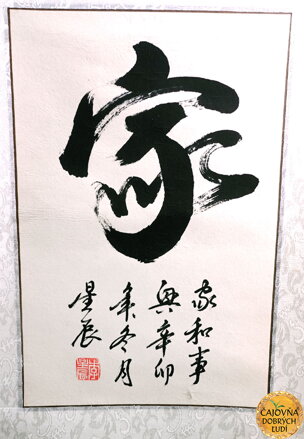 家
家和事
興辛卯
年冬月
星辰
ČAJOVŇA
DOBRÝCH
ĽUDÍ